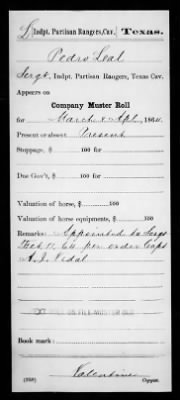 L | Indpt. Partisan Rangers, Cav. | Texas.
Pedro Leal
Sergt., Indpt. Partisan Rangers, Texas Cav.
Appears on
Company Muster Roll
for March & Apl, 1864.
Present or absent Present
Stoppage, $ 100 for
Due Gov't, $ 100 for
Valuation of horse, $ .100
Valuation of horse equipments, $ .100
Remarks: Appointed to Sergt
12 64 per order Capt
A. J. Vidal
Book mark:
Valentine
Copyist.